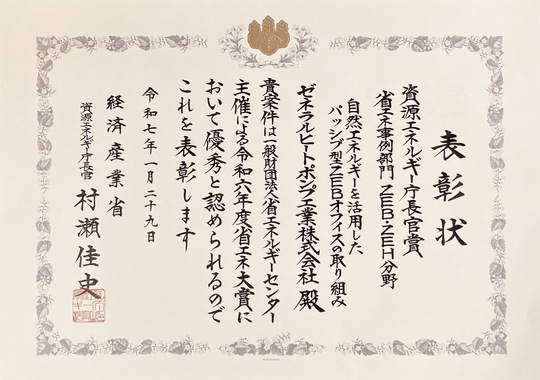 表彰状
資源エネルギー庁長官賞
省エネ事例部門 ZEB・ZEH分野
自然エネルギーを活用した
パッシブ型ZEBオフィスの取り組み
ゼネラルヒートポンプ工業株式会社 殿
貴案件は一般財団法人省エネルギーセンター
主催による令和六年度省エネ大賞に
おいて優秀と認められるので
これを表彰します
令和七年一月二十九日
経済産業省
資源エネルギー庁長官
村瀬佳史